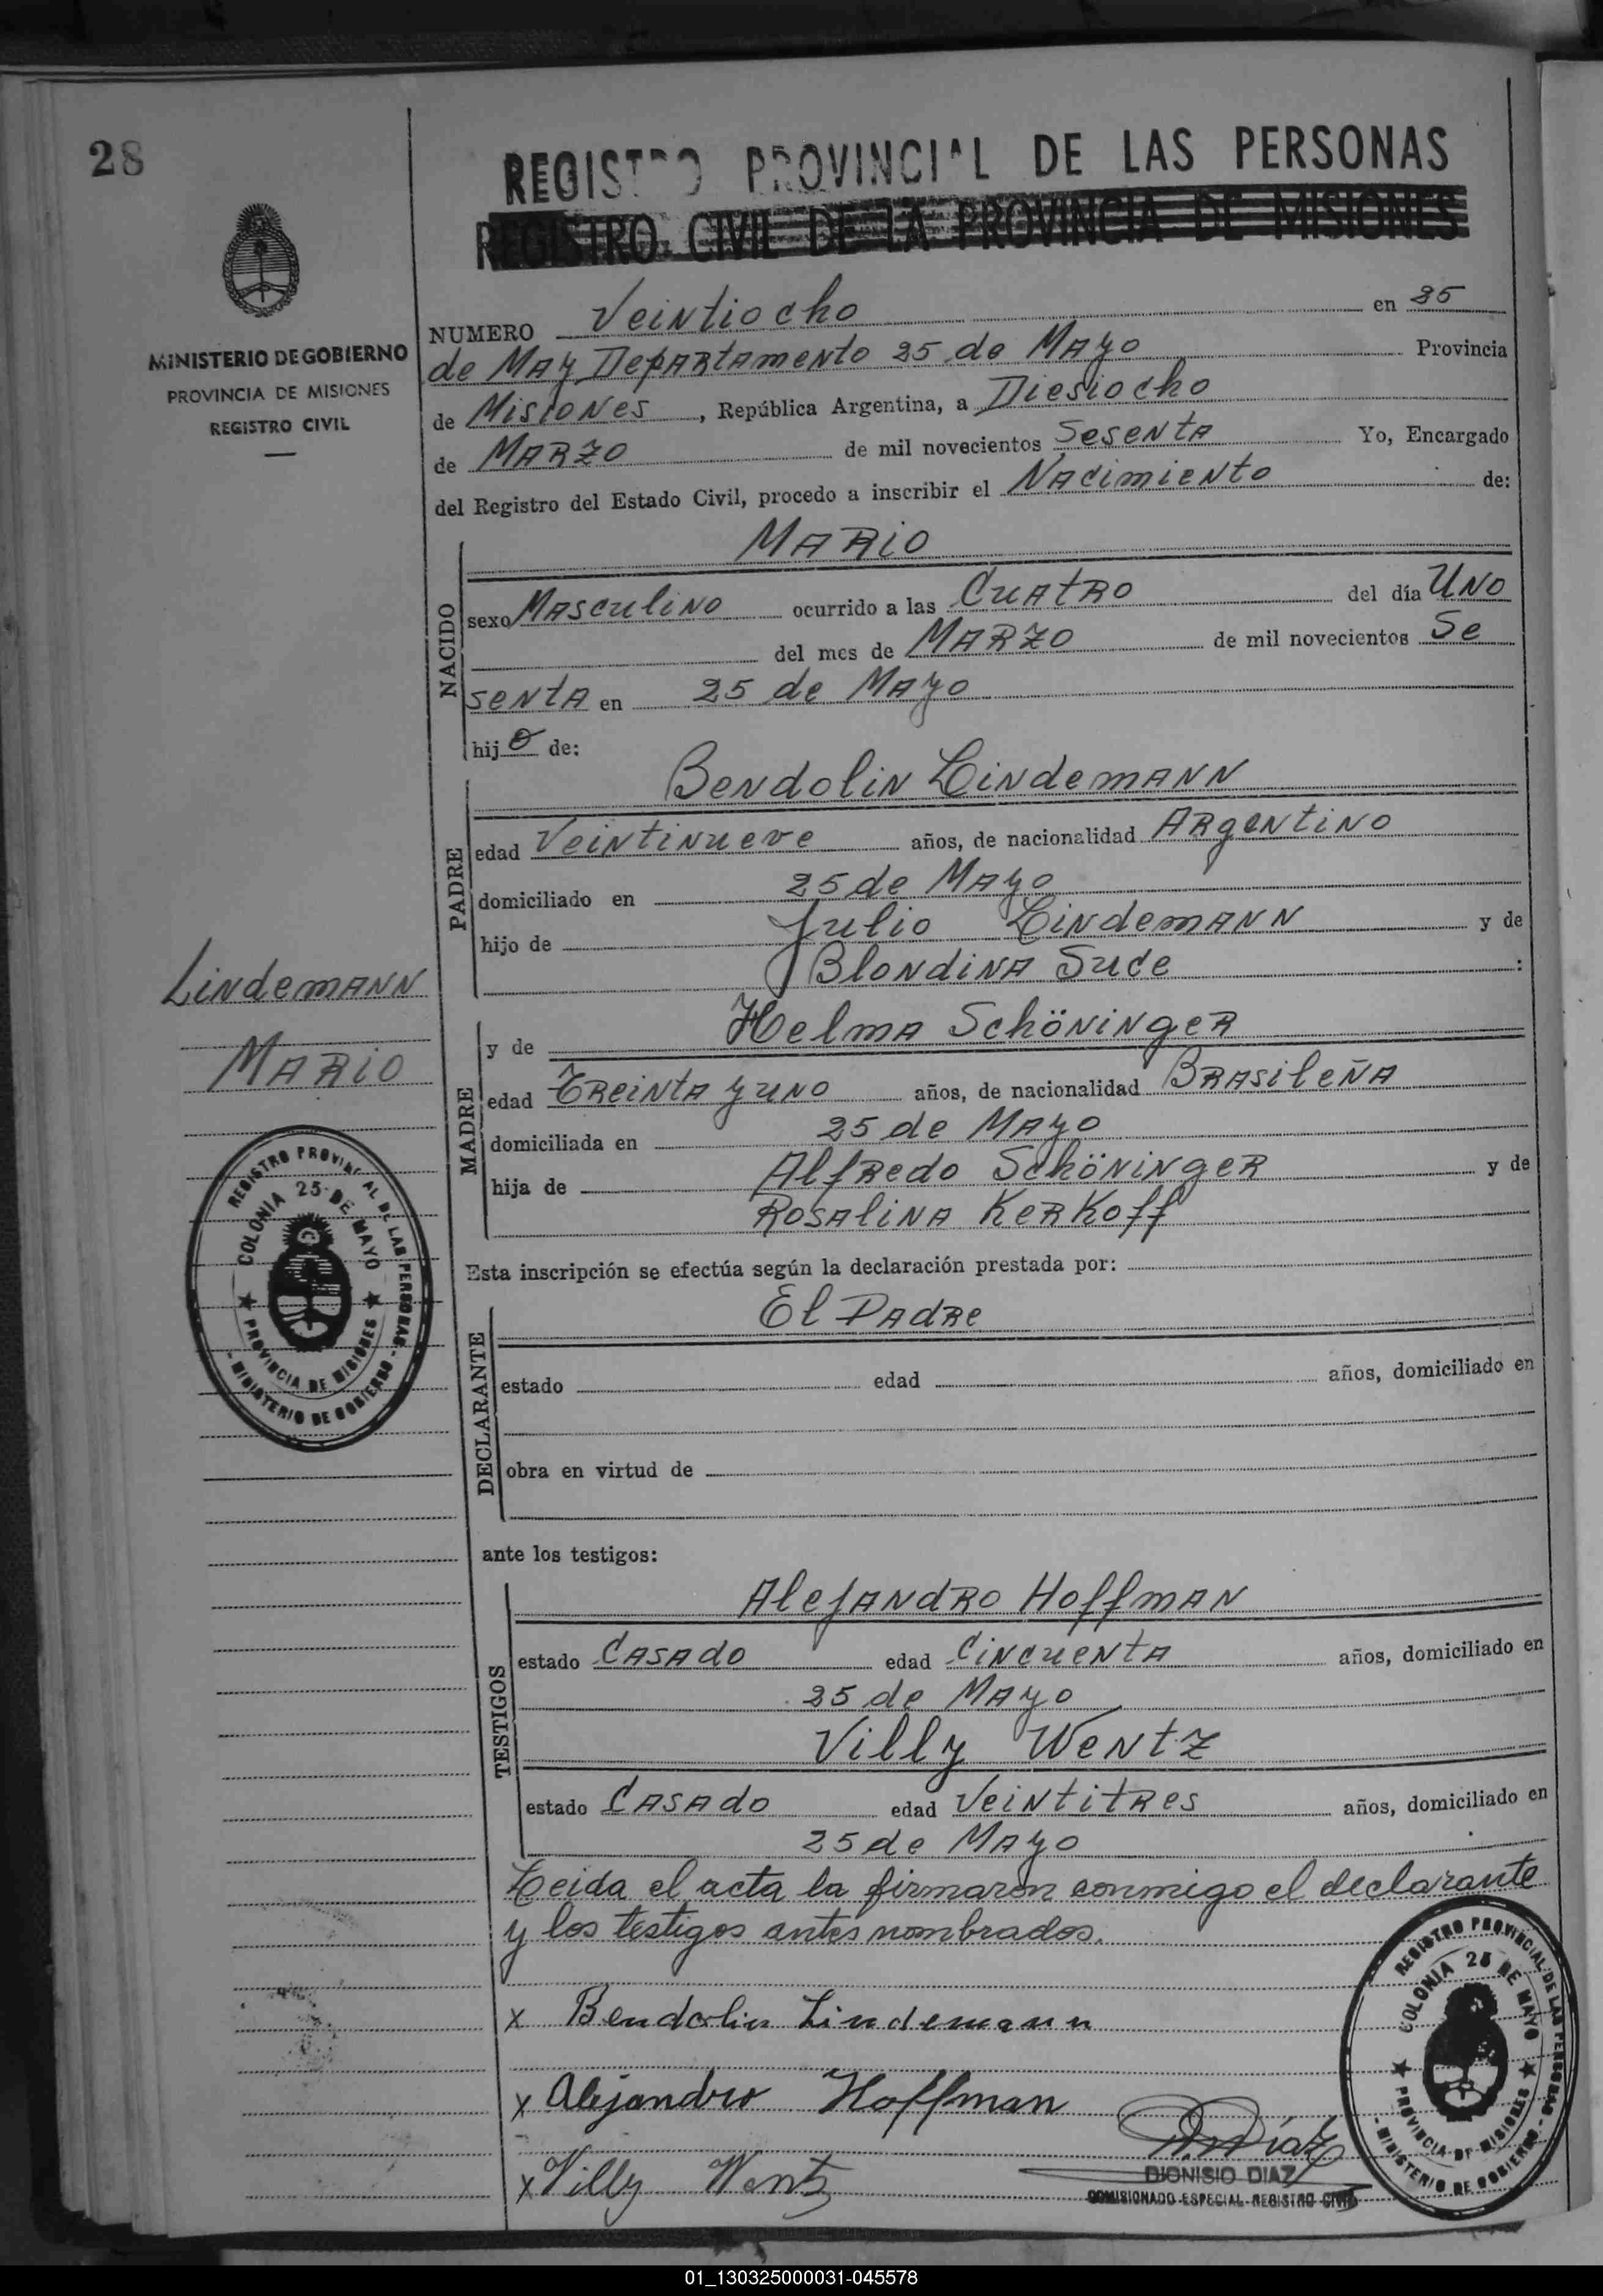 28
REGISTRO PROVINCIAL DE LAS PERSONAS
REGISTRO CIVIL DE LA PROVINCIA DE MISIONES
MINISTERIO DE GOBIERNO
PROVINCIA DE MISIONES
REGISTRO CIVIL
NUMERO Veintiocho en 25
de May Departamento 25 de Mayo Provincia
de Misiones, República Argentina, a Diesiocho
de Marzo de mil novecientos Sesenta Yo, Encargado
del Registro del Estado Civil, procedo a inscribir el Nacimiento de:
NACIDO
Mario
sexo Masculino ocurrido a las Cuatro del día Uno
del mes de Marzo de mil novecientos Se
senta en 25 de Mayo
hijo de:
PADRE
Bendolin Lindemann
edad Veintinueve años, de nacionalidad Argentino
domiciliado en 25 de Mayo
hijo de Julio Lindemann y de
Blondina Suce :
Lindemann
Mario
MADRE
y de Helma Schöninger
edad Treinta y uno años, de nacionalidad Brasileña
domiciliada en 25 de Mayo
hija de Alfredo Schöninger y de
Rosalina Kerkoff
REGISTRO PROVINCIAL DE LAS PERSONAS - MINISTERIO DE GOBIERNO -
COLONIA 25 DE MAYO ★ PROVINCIA DE MISIONES ★
Esta inscripción se efectúa según la declaración prestada por:
DECLARANTE
El Padre
estado edad años, domiciliado en
obra en virtud de
ante los testigos:
TESTIGOS
Alejandro Hoffman
estado Casado edad Cincuenta años, domiciliado en
25 de Mayo
Villy Wentz
estado Casado edad Veintitres años, domiciliado en
25 de Mayo
Leida el acta la firmaron conmigo el declarante
y los testigos antes nombrados.
x Bendolin Lindemann
x Alejandro Hoffman
x Villy Wentz
DIONISIO DIAZ
COMISIONADO ESPECIAL REGISTRO CIVIL
REGISTRO PROVINCIAL DE LAS PERSONAS - MINISTERIO DE GOBIERNO -
COLONIA 25 DE MAYO ★ PROVINCIA DE MISIONES ★
01_130325000031-045578